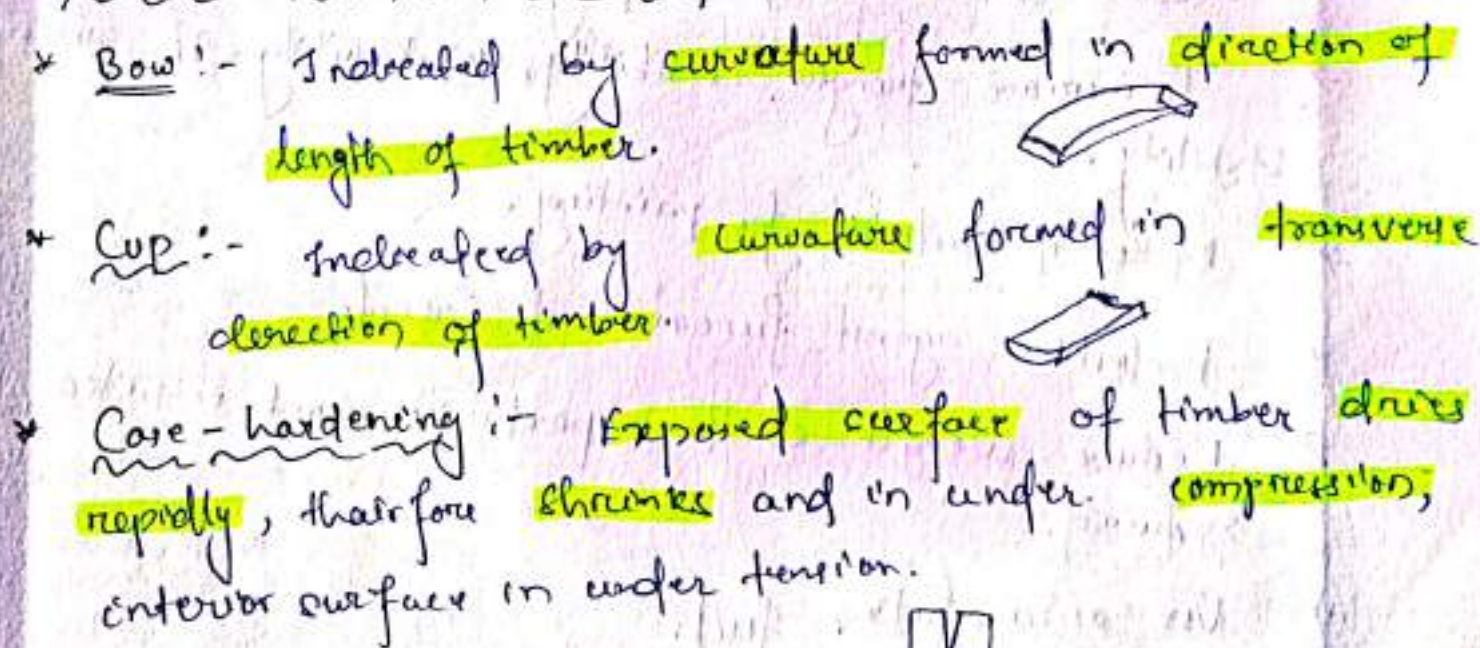 * Bow :- Indicated by curvature formed in direction of
length of timber.
* Cup :- Indicated by curvature formed in transverse
direction of timber.
* Case-hardening :- Exposed surface of timber dries
repidly, thairfore shrinks and in under. compression,
interior surface in under tension.